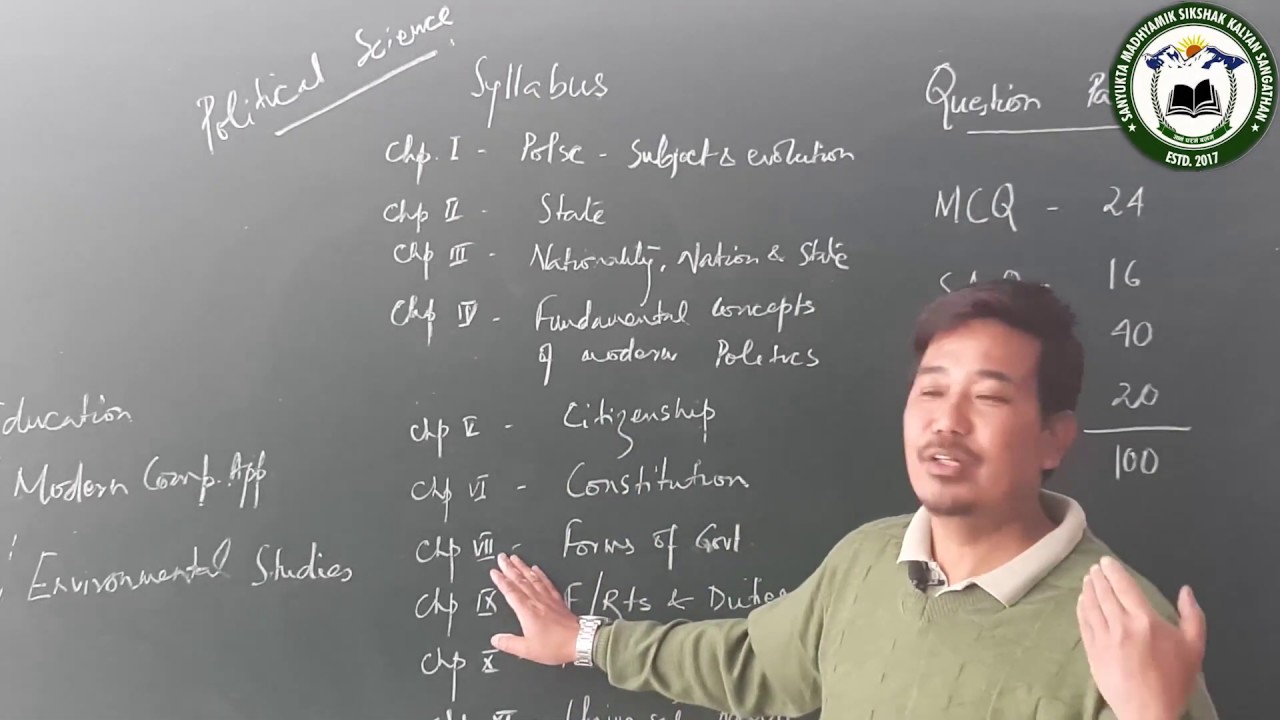 Political Science
Syllabus
Chp. I - PolSc - Subject & evolution
Chp II - State
Chp III - Nationality, Nation & State
Chp IV - Fundamental Concepts
of modern Politics
Chp V - Citizenship
Chp VI - Constitution
Chp VII - Forms of Govt
Chp IX F/Rts & Duties
Chp X
Chp XI
Education
Modern Comp. App
Environmental Studies
Question
MCQ - 24
16
40
20
100
SANYUKTA MADHYAMIK SIKSHAK KALYAN SANGATHAN
ESTD. 2017